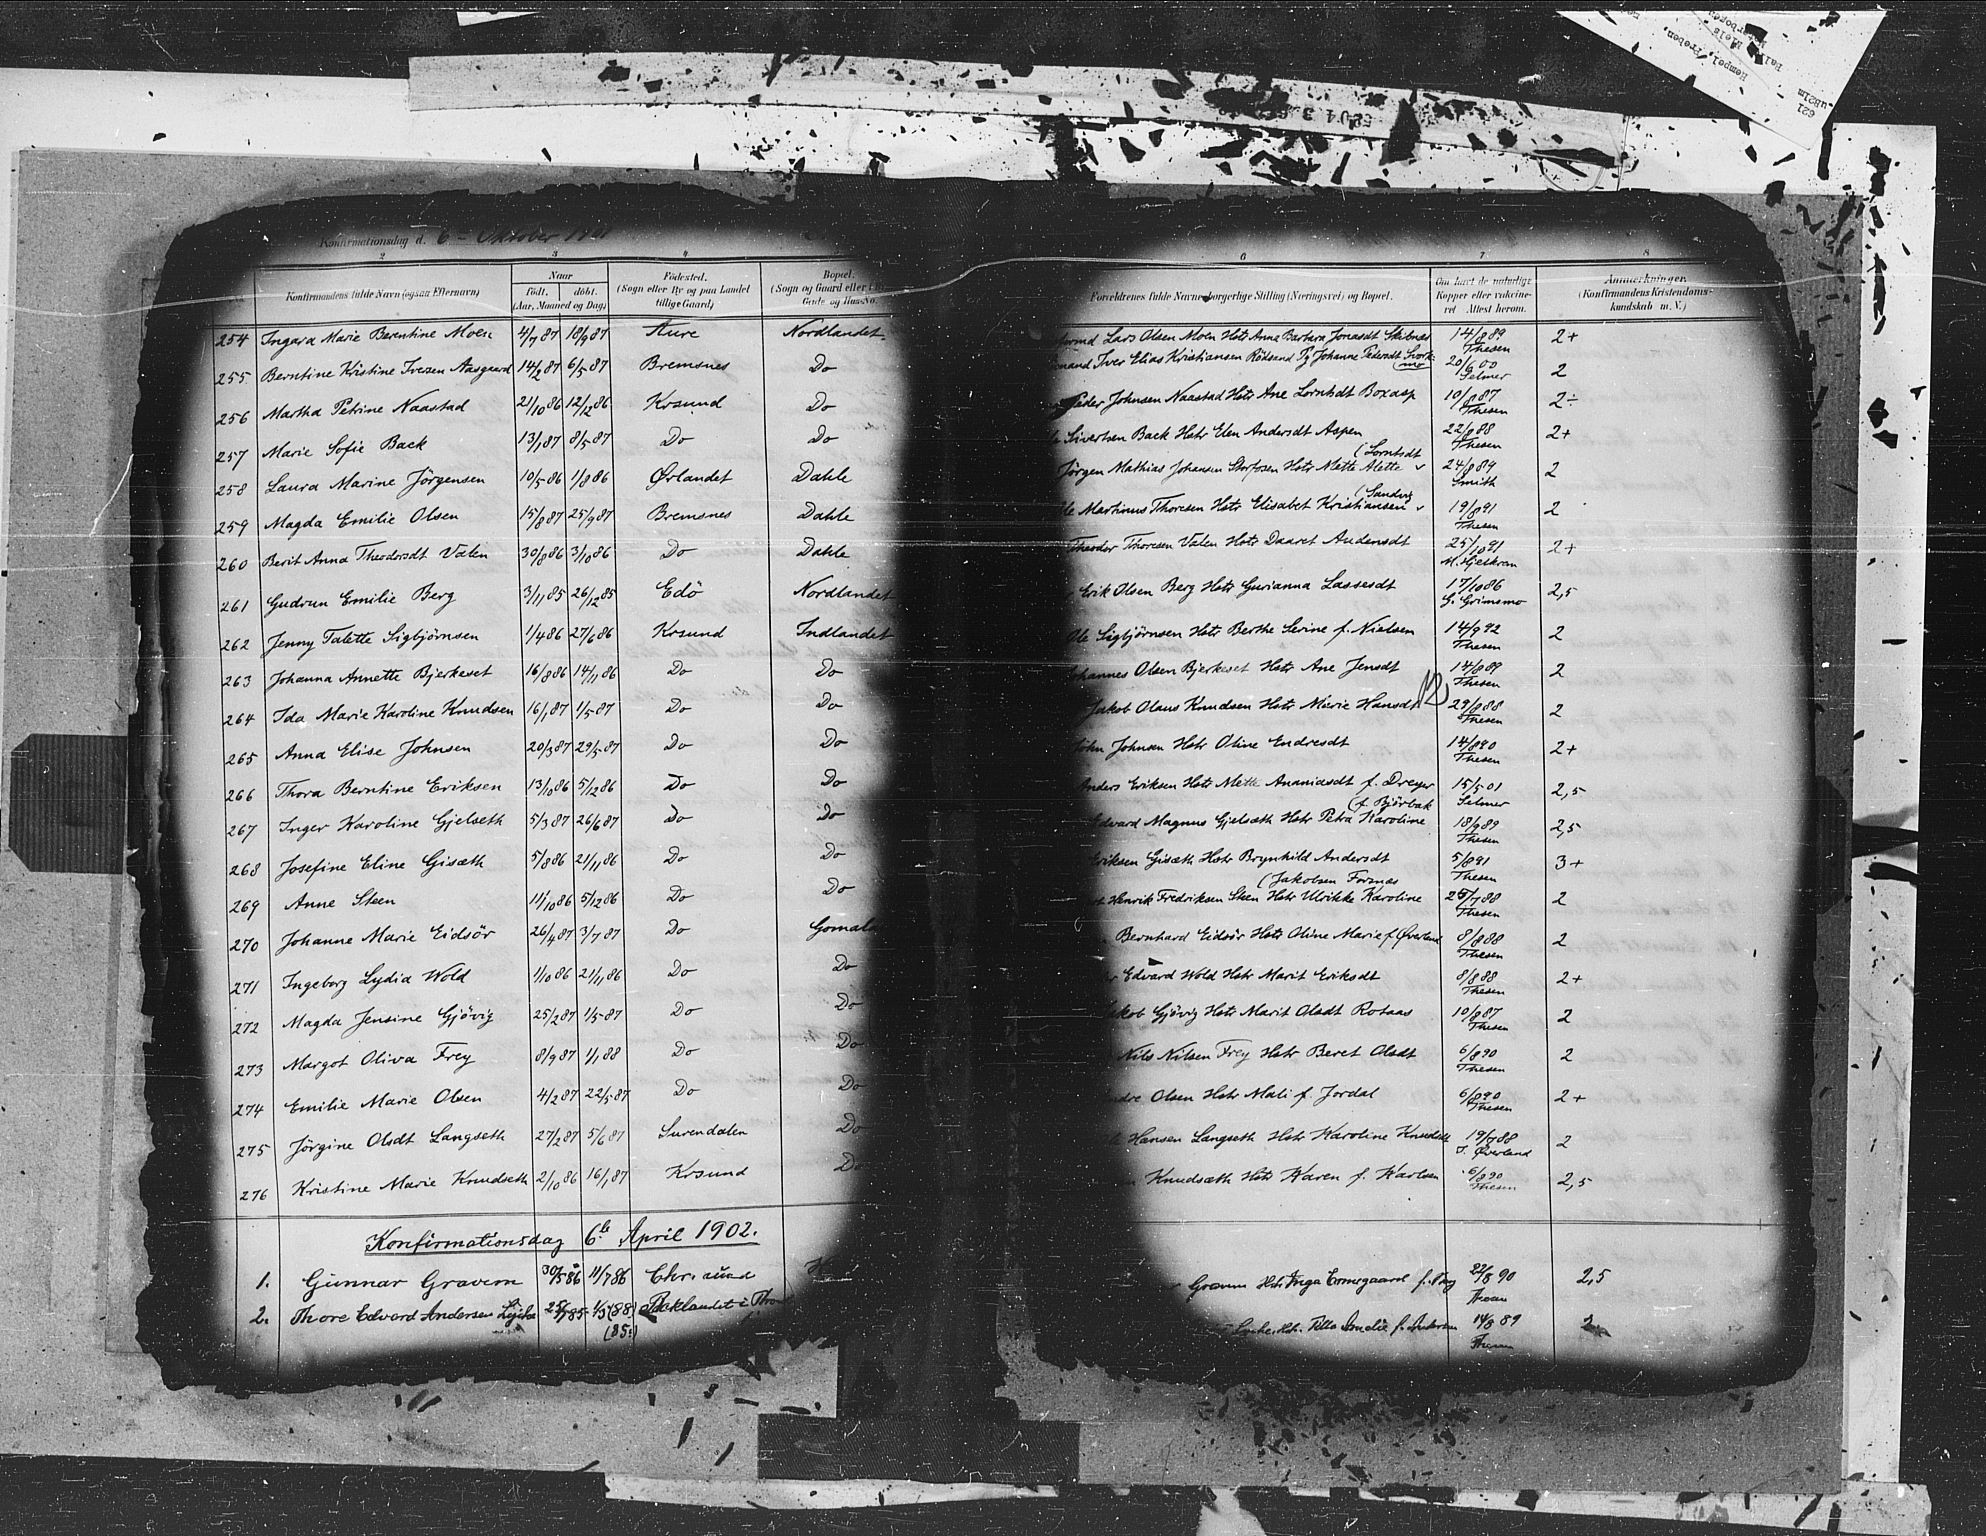 Konfirmationsdag d. 6 - Oktober 1901
2 3 4
Konfirmandens fulde Navn (ogsaa Efternavn)
Naar
födt. döbt.
(Aar, Maaned og Dag)
Födested.
(Sogn eller By og paa Landet
tillige Gaard)
Bopæl.
(Sogn og Gaard eller
Gade og Hus-No.
254 Ingara Marie Berntine Moen 4/7 87 18/9 87 Aure Nordlandet
255 Berntine Kristine Iversen Aasgaard 14/2 87 6/5 87 Bremsnes Do
256 Martha Petrine Naastad 21/10 86 12/12 86 Krsund Do
257 Marie Sofie Back 13/1 87 8/5 87 Do Do
258 Laura Marine Jörgensen 10/5 86 1/8 86 Ørlandet Dahle
259 Magda Emilie Olsen 15/8 87 25/9 87 Bremsnes Dahle
260 Berit Anna Theodorsdt Valen 30/8 86 3/10 86 Do Dahle
261 Gudrun Emilie Berg 3/11 85 26/12 85 Edö Nordlandet
262 Jenny Talette Sigbjörnsen 1/4 86 27/6 86 Krsund Indlandet
263 Johanna Annette Bjerkeset 16/8 86 14/11 86 Do Do
264 Ida Marie Karoline Knudsen 16/1 87 1/5 87 Do Do
265 Anna Elise Johnsen 20/3 87 29/5 87 Do Do
266 Thora Berntine Eriksen 13/10 86 5/12 86 Do Do
267 Inger Karoline Gjelseth 5/3 87 26/6 87 Do Do
268 Josefine Eline Gisæth 5/8 86 21/11 86 Do Do
269 Anne Steen 11/10 86 5/12 86 Do Do
270 Johanne Marie Eidsör 26/4 87 3/7 87 Do Gomal
271 Ingeborg Lydia Wold 1/10 86 21/11 86 Do Do
272 Magda Jensine Gjövig 25/2 87 1/5 87 Do Do
273 Margot Oliva Frey 8/9 87 1/1 88 Do Do
274 Emilie Marie Olsen 4/2 87 22/5 87 Do Do
275 Jörgine Olsdt Langseth 27/2 87 5/6 87 Surendalen Do
276 Kristine Marie Knudseth 2/10 86 16/1 87 Krsund Do
Konfirmationsdag 6te April 1902.
1. Gunnar Gravem 30/5 86 11/7 86 Chr.sund
2. Thore Edvard Andersen
(85)
6 7 8
Forældrenes fulde Navne, borgerlige Stilling (Næringsvei) og Bopæl.
Om havt de naturlige
Kopper eller vakcine-
ret Attest herom.
Anmærkninger.
(Konfirmandens Kristendoms-
kundskab m. V.)
Lars Olsen Moen Hstr Anne Barbara Jonasdt Skibnes 14/8 89 2+
Thesen
Iver Elias Kristiansen Rödsand Pg Johanne Pedersdt 20/6 00 2
(mo Selmer
Peder Johnsen Naastad Hstr Ane Lornhdt Boxasp 10/8 87 2÷
Thesen
Sivertsen Back Hstr Elen Andersdt Aspen 22/8 88 2+
Thesen
(Lorntsdt
Jörgen Mathias Johansen Storfosen Hstr Mette Alette 24/8 89 2
Smith
(Sandvig
Martinus Thoresen Hstr Elisabet Kristiansen 19/8 91 2
Thesen
Theodor Thoresen Valen Hstr Daaret Andersdt 25/10 91 2+
M. Hjelkrem
Erik Olsen Berg Hstr Gurianna Lassesdt 17/10 86 2,5
G. Grimsmo
Ole Sigbjörnsen Hstr Berthe Serine f. Nielsen 14/9 92 2
Thesen
Johannes Olsen Bjerkeset Hstr Ane Jensdt 14/8 89 2
Thesen
Jakob Olaus Knudsen Hstr Marie Hansdt 29/8 88 2
Thesen
John Johnsen Hstr Oline Endresdt 14/8 90 2+
Thesen
Anders Eriksen Hstr Mette Ananiasdt f. Dreyer 15/5 01 2,5
(f. Björbak Selmer
Edvard Magnus Gjelsæth Hstr Petra Karoline 18/9 89 2,5
Thesen
Eriksen Gisæth Hstr Brynhild Andersdt 5/8 91 3+
(Jakobsen Formas Thesen
Henrik Fredriksen Steen Hstr Ulrikke Karoline 25/7 88 2
Thesen
Bernhard Eidsör Hstr Oline Marie f. Øverland 8/8 88 2
Thesen
Edvard Wold Hstr Marit Eriksdt 8/8 88 2+
Thesen
Jakob Gjövig Hstr Marit Olsdt Rotaas 10/8 87 2
Thesen
Nils Nilsen Frey Hstr Beret Olsdt 6/8 90 2
Thesen
Olsen Hstr Mali f. Jordal 6/8 90 2+
Thesen
Hansen Langseth Hstr Karoline Knudsdt 19/7 88 2
J. Øverland
Knudsæth Hstr Karen f. Karlsen 6/8 90 2,5
Thesen
Gravem Hstr Inga 22/8 90 2,5
Thesen
f. Andersen 14/8 89 2
Thesen